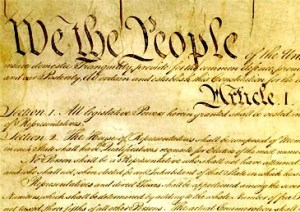 We the People of the Un
insure domestic Tranquility, provide for the common defence, promo
and our Posterity, do ordain and establish this Constitution for the
Article. I.
Section. 1. All legislative Powers herein granted shall be vested
of Representatives.
Section. 2. The House of Representatives shall be composed of
in each State shall have Qualifications requisite for
No Person shall be a Representative who shall not have attained
and who shall not, when elected, be an Inhabitant of that State in which
Representatives and direct Taxes shall be apportioned among the
Numbers, which shall be determined by adding to the whole Number of